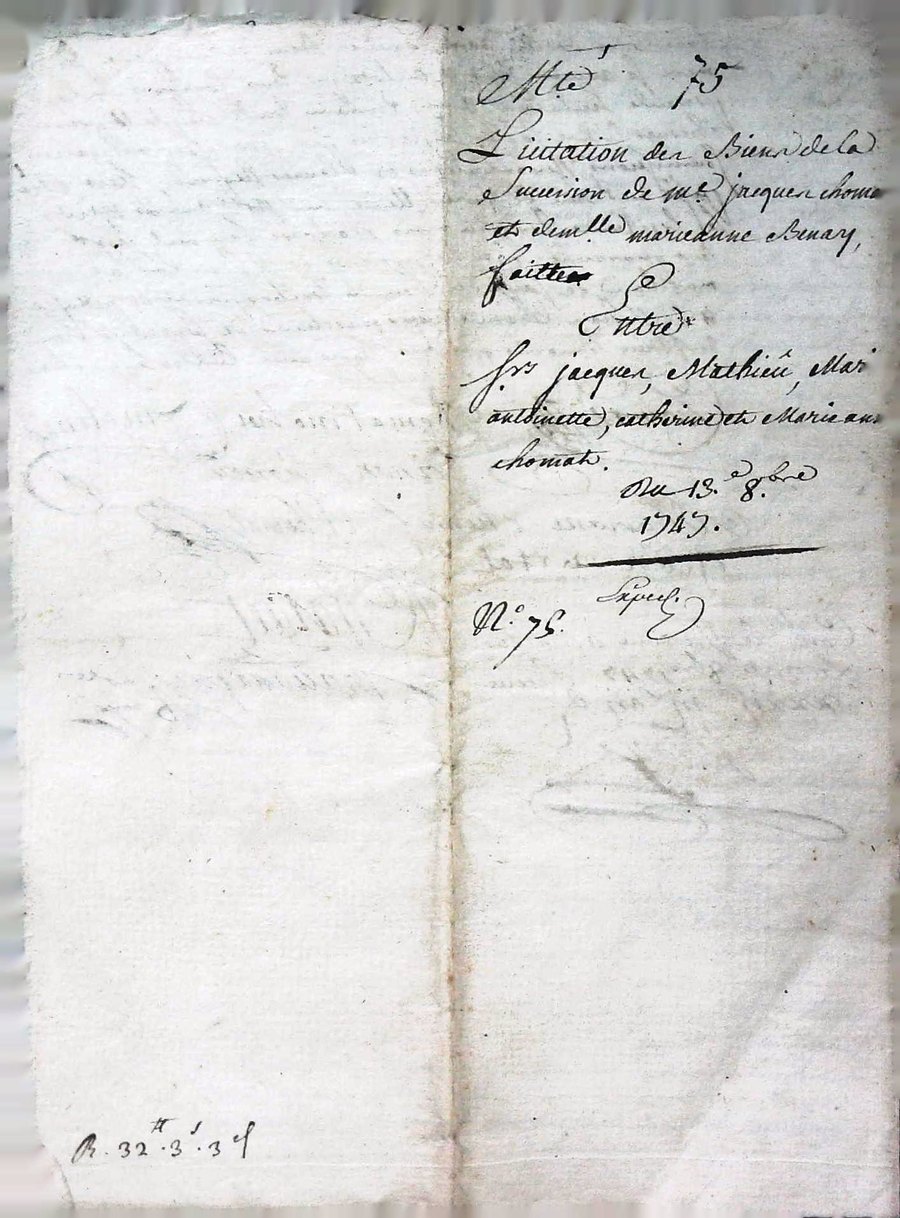 Mte 75
Licitation des Biens de la
Succession de me jacques choma
et demlle marieanne Benay,
faitte
Entre
Srs jacques, Mathieû, Mari
antoinette, catherine et Marie ann
chomat.
Du 13.e 8.bre
1747.
N.o 75.
R. 32 tt. 3 s. 3 d